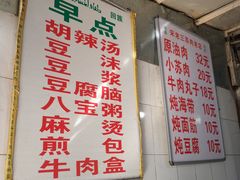 回族
早点
胡辣汤
豆沫
豆浆
豆腐脑
八宝粥
麻烫
煎包
牛肉盒
原油肉 32元
小苏肉 20元
牛肉丸子 18元
炖海带 10元
炖面筋 10元
炖豆腐 10元